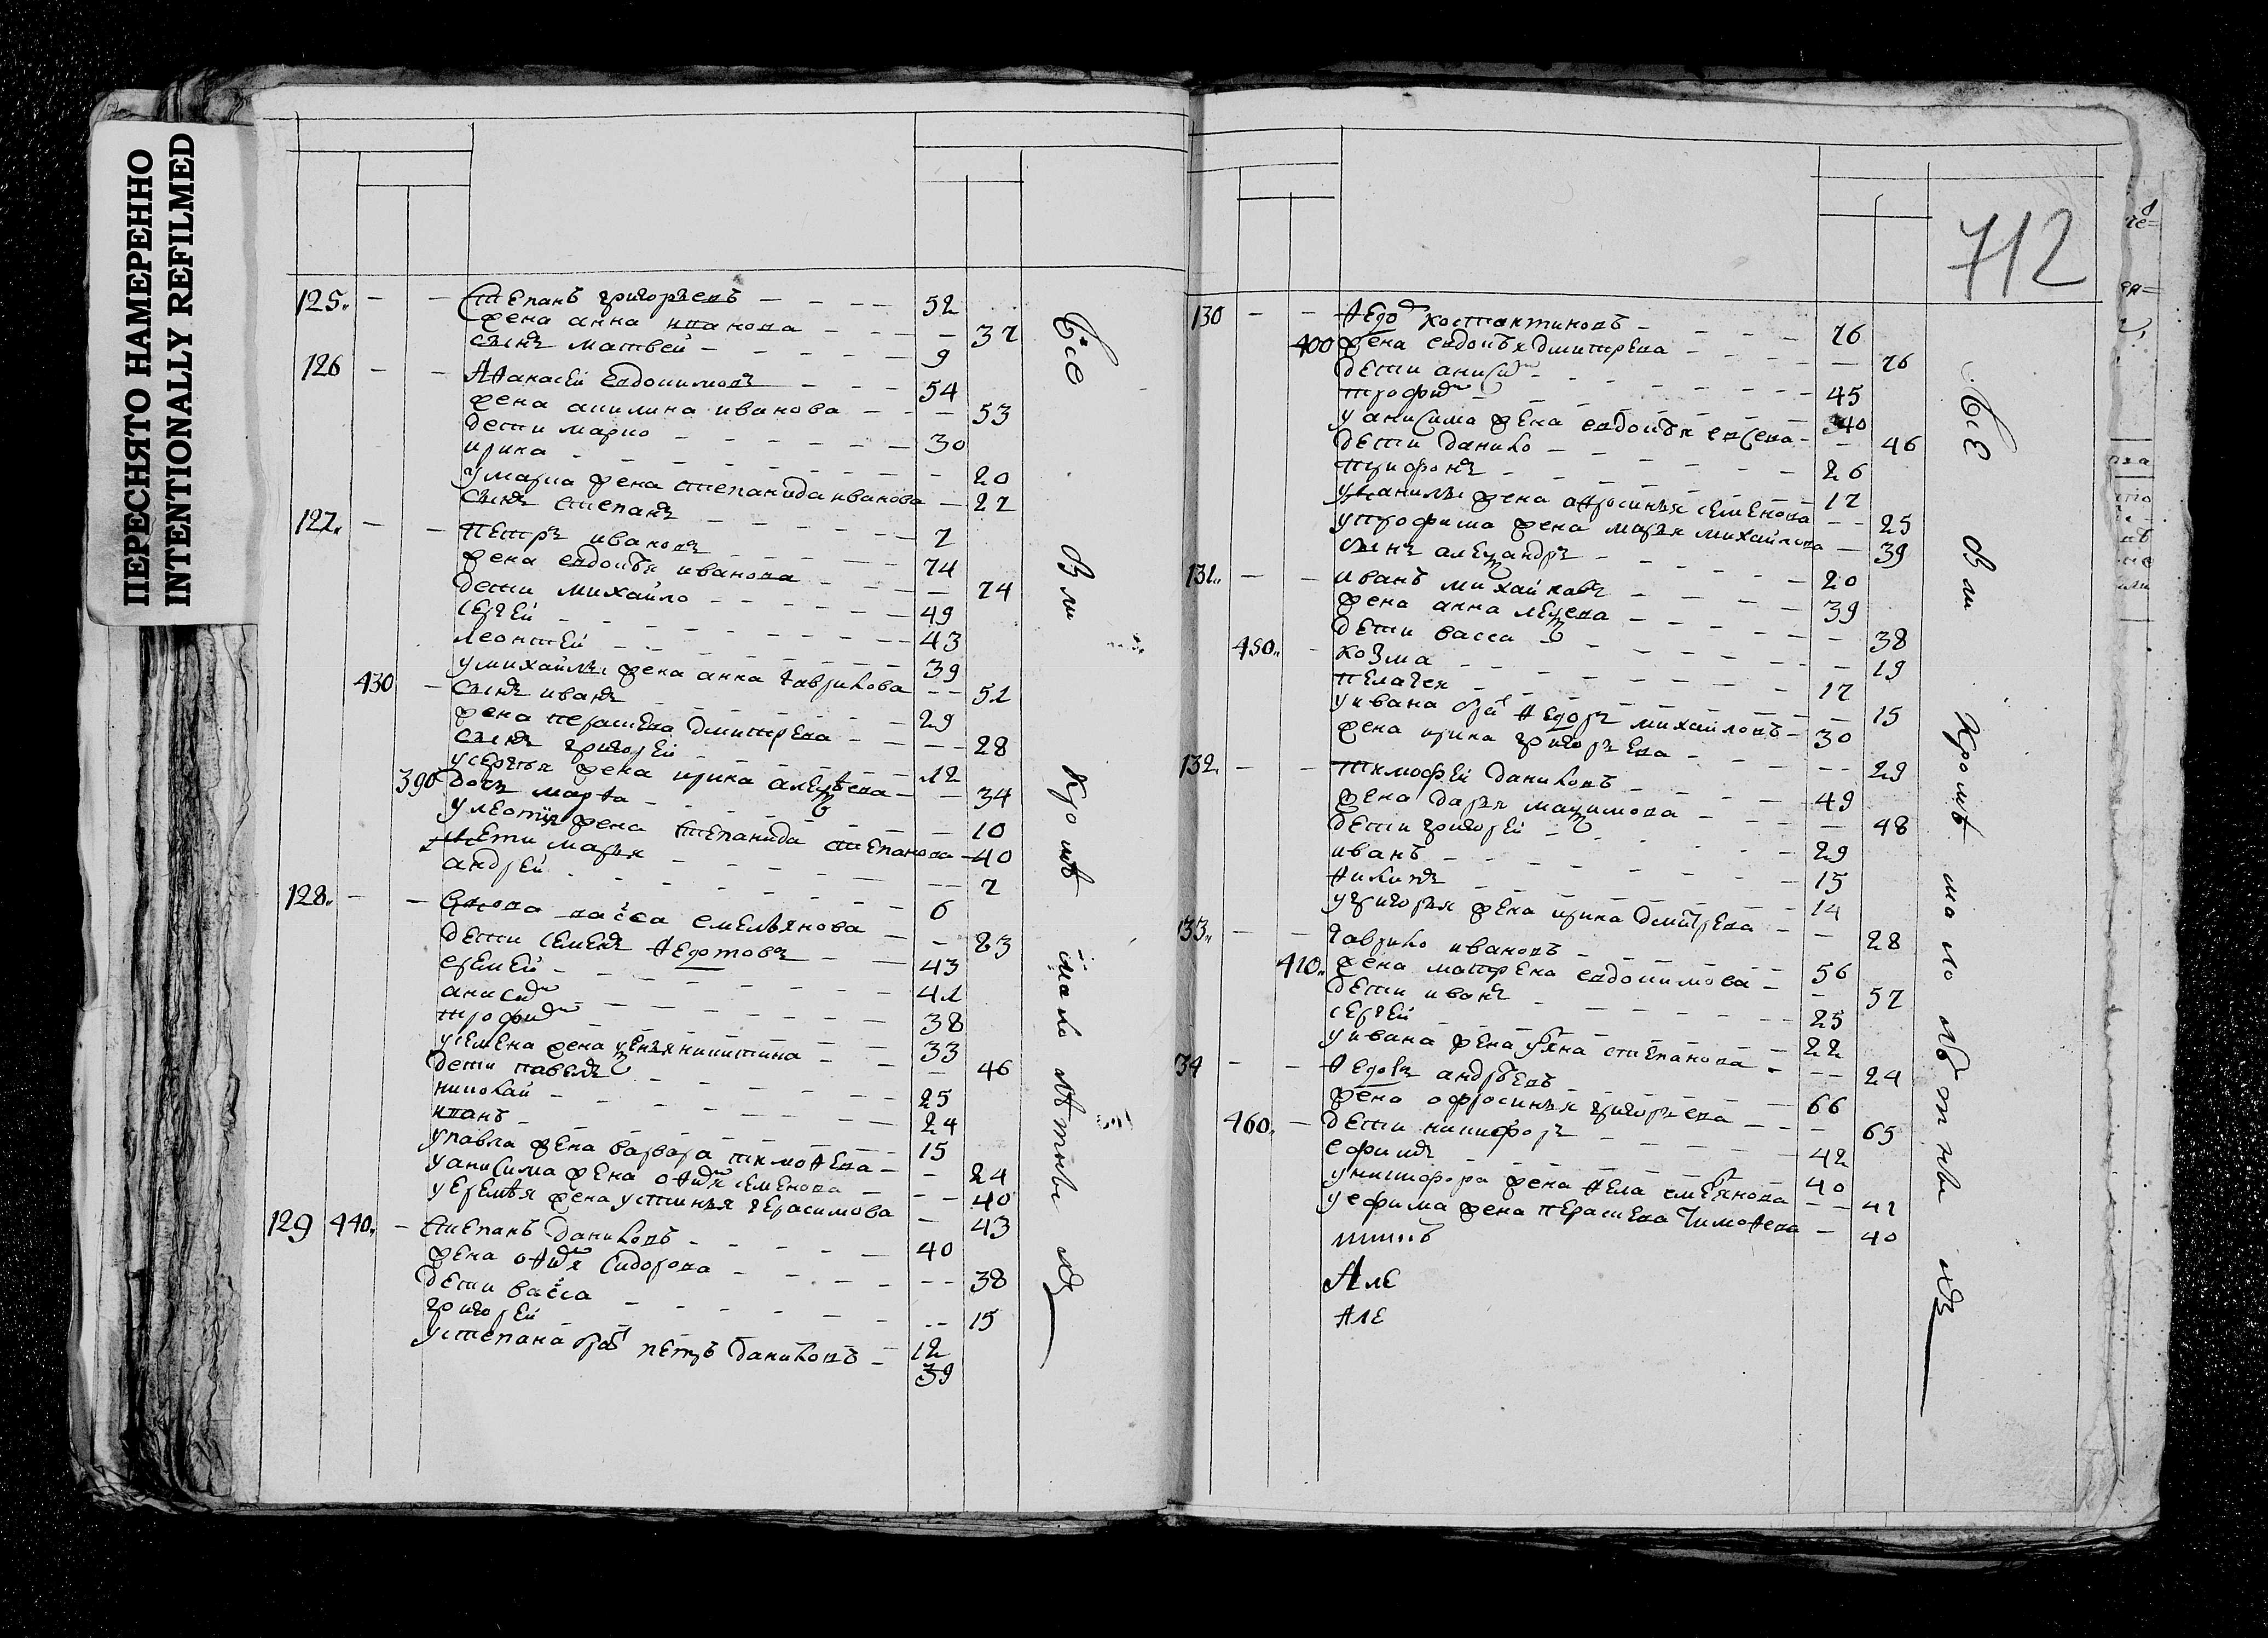 ПЕРЕСНЯТО НАМЕРЕННО
INTENTIONALLY REFILMED
125. Степанъ григорьевъ 52
жена анна ивановa 37
сынъ матвей 9
126 Афанасей евдокимовъ 54
жена акилина иванова 53
дети марко 30
ирина 20
у марка жена степанида иванова 27
сынъ степанъ 7
127. Петръ ивановъ 74
жена евдокѣя иванова 74
дети михайло 49
сергей 43
леонтей 39
у михайлы жена анна гаврилова 51
430 сынъ иванъ 29
жена парасковa дмитрева 28
сынъ григорей 12
у сергѣя жена ирина алексѣева 34
390 дочь марфа 10
у леонтия жена степанида степанова 40
дети марья 7
андрей 6
128. вдова васса емельянова 83
дети семенъ федотовъ 43
еремей 41
анисимъ 38
трофимъ 33
у семена жена ксенья никитина 46
дети павелъ 25
николай 24
иванъ 15
у павла жена варвара тимофева 24
у анисима жена офимья семенова 40
у еремѣя жена устинья герасимова 43
129 440. Степанъ даниловъ 40
жена офимья сидорова 38
дети васса 15
григорей 12
у степана братъ петръ даниловъ 39
Всѣ
Въ ли
Кромѣ
мало
лѣтны
хъ
712
130 Федоръ костантиновъ 76
400 жена евдокѣя дмитрева 76
дети анисимъ 45
трофимъ 40
у анисима жена евдокѣя евсева 46
дети данило 26
трифонъ 17
у данилы жена афросинья семенова 25
у трофима жена марья михайлова 39
сынъ александръ 20
131. иванъ михайлавъ 39
жена анна алексева 38
дети васса 19
450. козма 17
пелагея 15
у ивана братъ федоръ михайловъ 30
жена ирина григорьева 29
132. тимофей даниловъ 49
жена дарья максимова 48
дети григорей 29
иванъ 15
филипъ 14
у григорья жена ирина дмитрева 28
133. гаврило ивановъ 56
410. жена матрена евдокимова 57
дети иванъ 25
сергей 22
у ивана жена степанова 24
34 Федоръ андрѣевъ 66
жена офросинья григорьева 65
460. дети никифоръ 42
ефимъ 40
у никифора жена фекла емельянова 41
у ефима жена парасковa тимофева 40
Але
Але
Всѣ
Въ ли
Кромѣ
мало
лѣтны
хъ